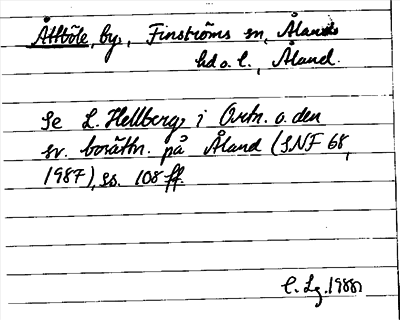 Åttböle, by, Finströms sn, Ålands
hd o. l., Åland.
Se L. Hellberg, i Ortn. o. den
sv. bosättn. på Åland (SNF 68,
1987), ss. 108 ff.
C. Lg. 1988